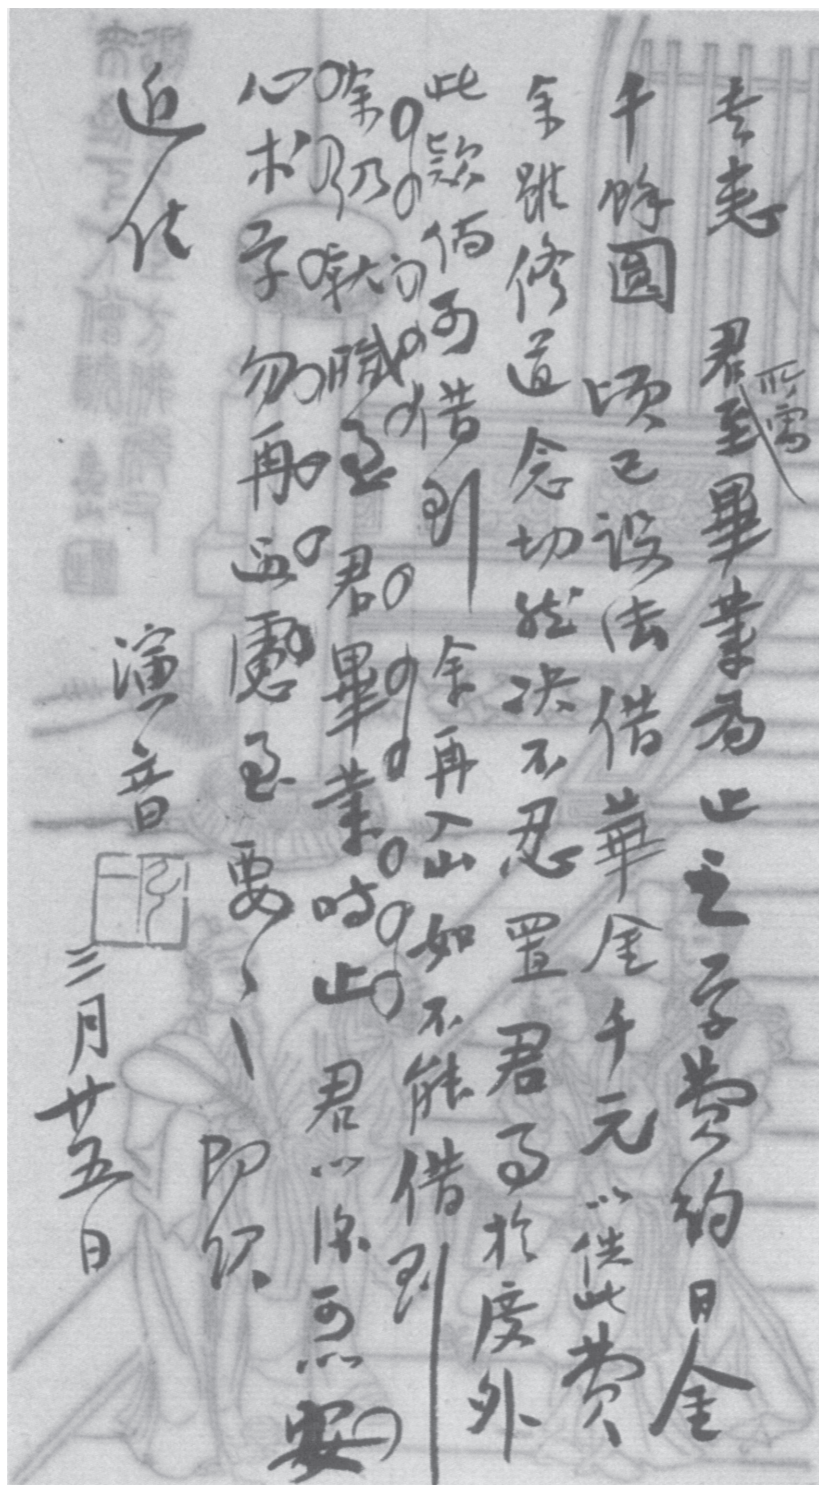 書悉 君所需至畢業為止之学費約日金
千餘圓 頃已設法借華金千元以供此費
余雖修道念切然决不忍置君事於度外
此款倘可借到 余再入山如不能借到
余仍就職至君畢業時止 君以後可以安
心求学勿再過慮至要至要 即頌
近佳
演音
三月廿五日